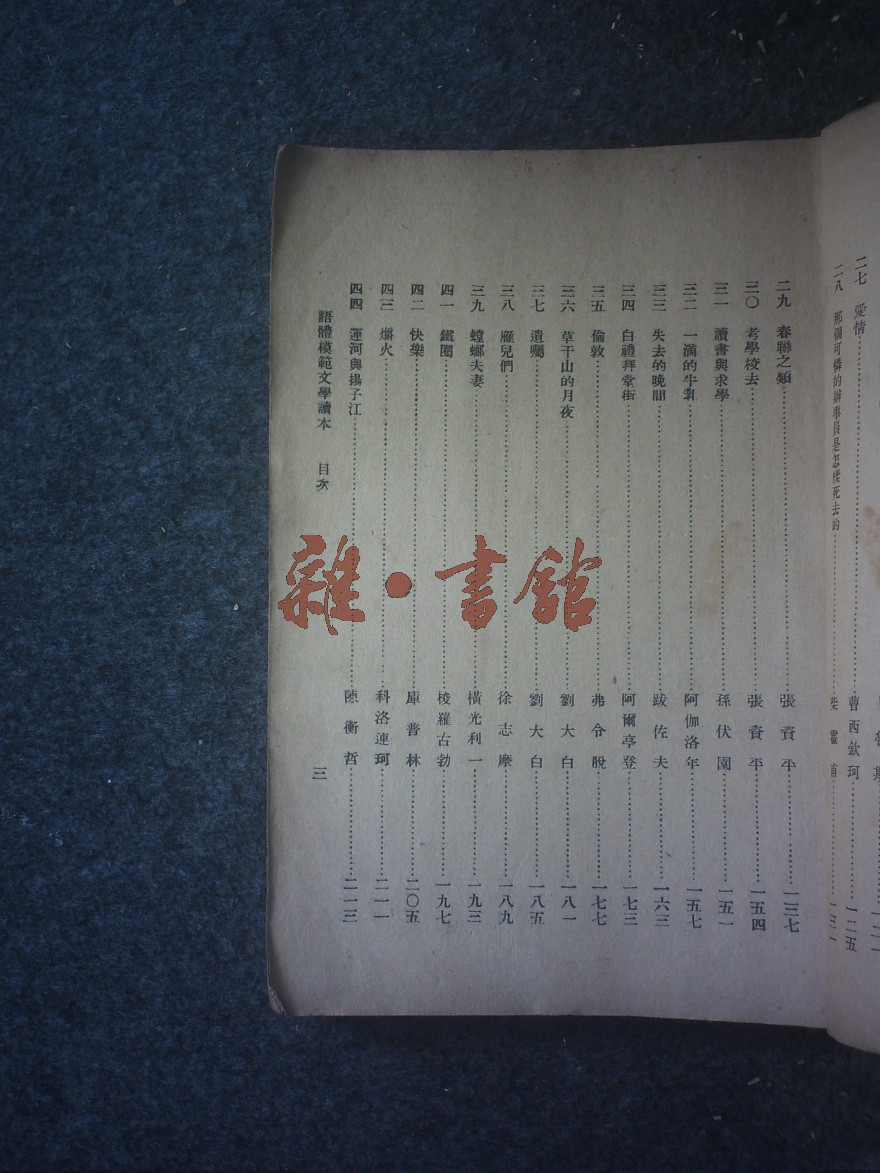 二七 愛情 曹西欽珂 一二五
二八 那個可憐的辦事員是怎樣死去的 柴霍甫 一三一
二九 春聯之類 張資平 一三七
三〇 考學校去 張資平 一五四
三一 讀書與求學 孫伏園 一五一
三二 一滴的牛乳 阿伽洛年 一五七
三三 失去的晚間 跋佐夫 一六三
三四 白禮拜堂街 阿爾亭登 一七三
三五 倫敦 弗令脫 一七七
三六 草干山的月夜 劉大白 一八一
三七 遺囑 劉大白 一八五
三八 雁兒們 徐志摩 一八九
三九 螳螂夫妻 橫光利一 一九三
四一 鐵圈 梭羅古勃 一九七
四二 快樂 庫普林 二〇五
四三 爝火 科洛連珂 二一一
四四 運河與揚子江 陳衡哲 二一三
語體模範文學讀本 目次 三
雜·書館